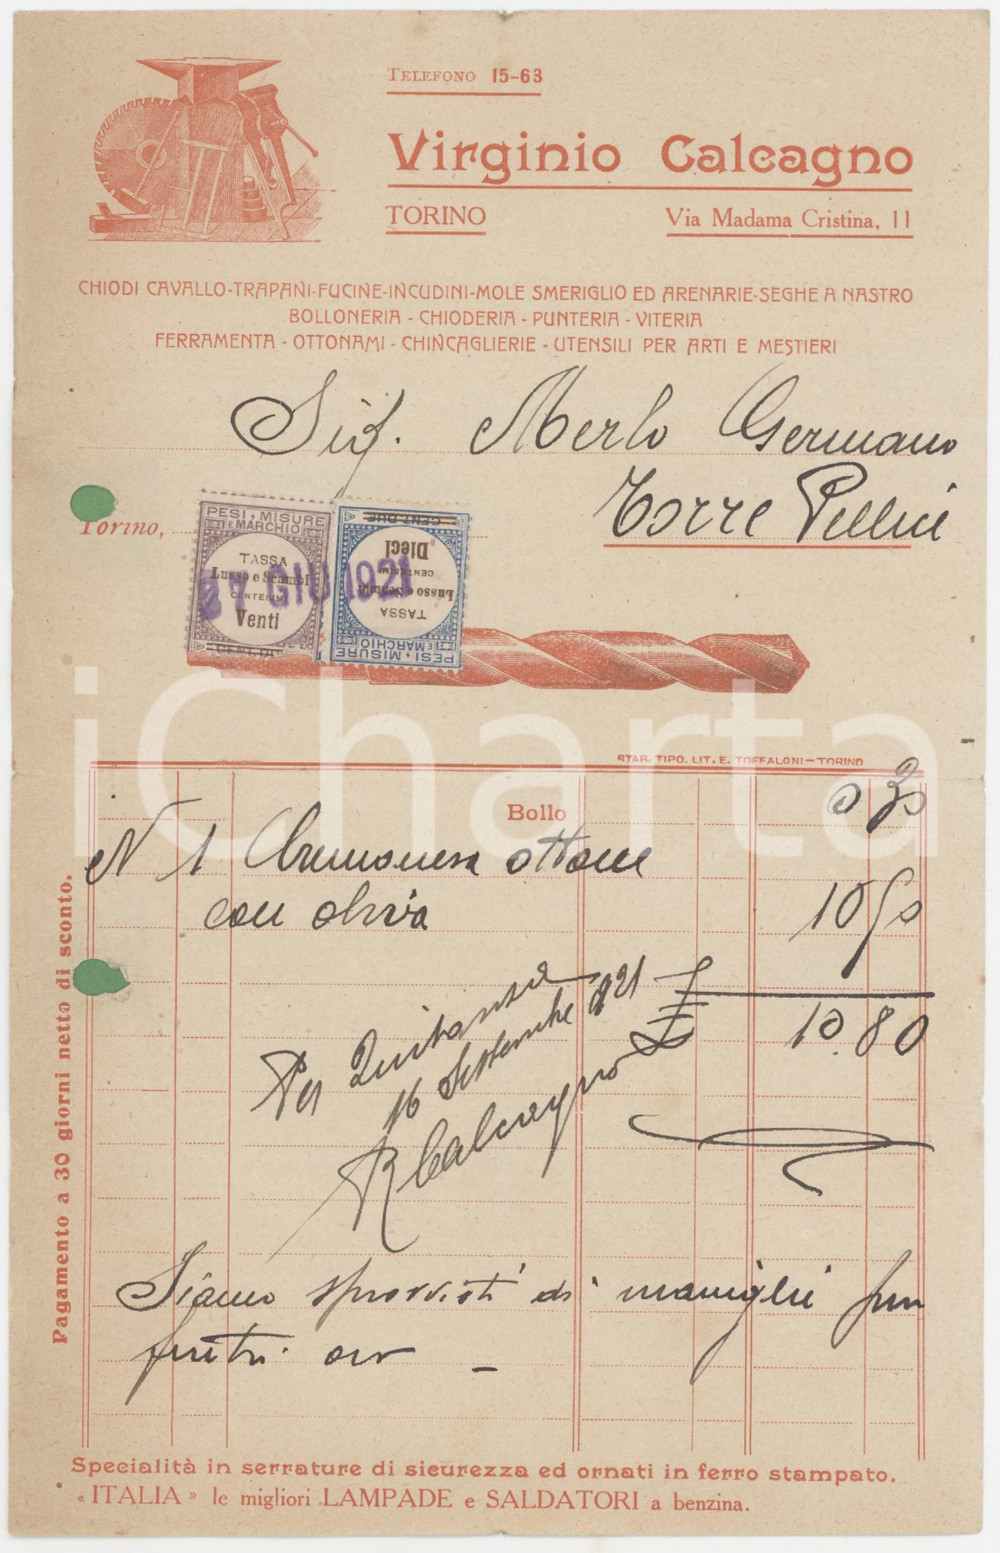 TELEFONO 15-63
Virginio Calcagno
TORINO Via Madama Cristina, 11
CHIODI CAVALLO-TRAPANI-FUCINE-INCUDINI-MOLE SMERIGLIO ED ARENARIE-SEGHE A NASTRO
BOLLONERIA - CHIODERIA - PUNTERIA - VITERIA
FERRAMENTA - OTTONAMI - CHINCAGLIERIE - UTENSILI PER ARTI E MESTIERI
Sig. Merlo Germano
Torre Pellice
Torino,
PESI, MISURE
E MARCHIO
TASSA
Lusso e Scambi
CENTESIMI
Venti
CENT. DUE
PESI, MISURE
E MARCHIO
TASSA
Lusso e Scambi
CENTESIMI
Dieci
CENT. DUE
27 GIU 1921
iCharta
STAB. TIPO. LIT. E. TOFFALONI-TORINO
Bollo 0 30
N 1 Cremonese ottone
con oliva 10 50
£ 10.80
Per Quitanza
16 Settembre 921
R Calcagno
Siamo sprovvisti di maniglie
Pagamento a 30 giorni netto di sconto.
Specialità in serrature di sicurezza ed ornati in ferro stampato.
« ITALIA » le migliori LAMPADE e SALDATORI a benzina.